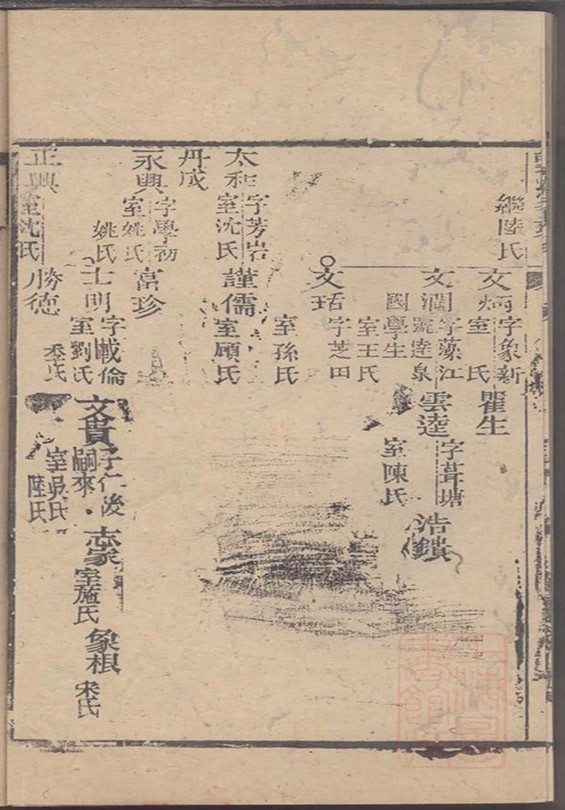 繼陸氏
文炳 字象新
室 氏
瞿生
文潤 字藻江
號逵泉
國學生
室王氏
雲逵 字葺塘
室陳氏
浩鐄
文珸 字芝田
室孫氏
太和 字芳岩
室沈氏
謹儒 室顧氏
丹成
永興 字學初
室姚氏
姚氏
富珍
士明 字載倫
室劉氏
季氏
文貴 子仁後
嗣來
室吳氏
陸氏
志家 室施氏
象根 宋氏
正興 室沈氏
勝德